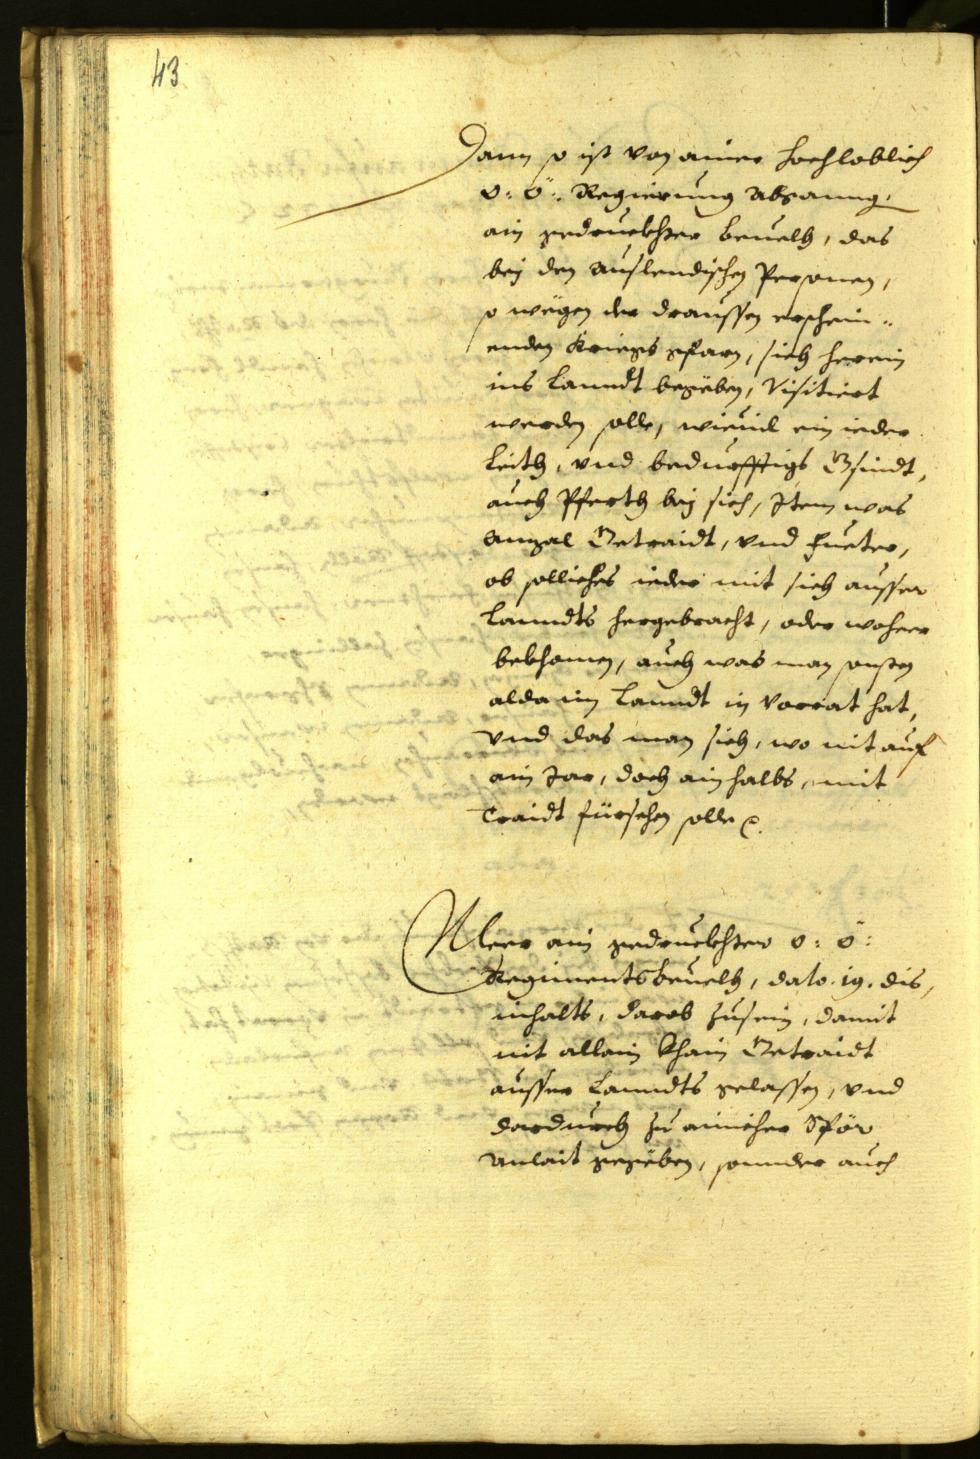 43
Dann so ist von ainer hochloblich
o: ö: Regierung abganng:
ain gedruckhter beuelh, das
bej den auslendischen Personen,
so wegen der draussen erschein„
enden Kriegs gfarn, sich herein
ins Lanndt begeben, Visitiert
werden solle, wieuil ein ieder
Leith, vnd bedurfftigs Gsindt,
auch Pferth bej sich, Item was
Anzal Getraidt, vnd Fueter,
ob solliches ieder mit sich ausser
Lanndts hergebracht, oder woheer
bekhomen, auch was man sonsten
alda im Lanndt in Vorrat hat,
vnd das man sich, wo nit auf
ain Jar, doch ain halbs, mit
Traidt fürsehen solle.
Meer ain gedruckhter o: ö:
Regimentsbeuelh, dato .19. dis,
inhalts, darob zusein, damit
nit allain khain Getraidt
ausser Lanndts gelassen, vnd
dardurch zu ainicher Spör
Anlait gegeben, sonnder auch